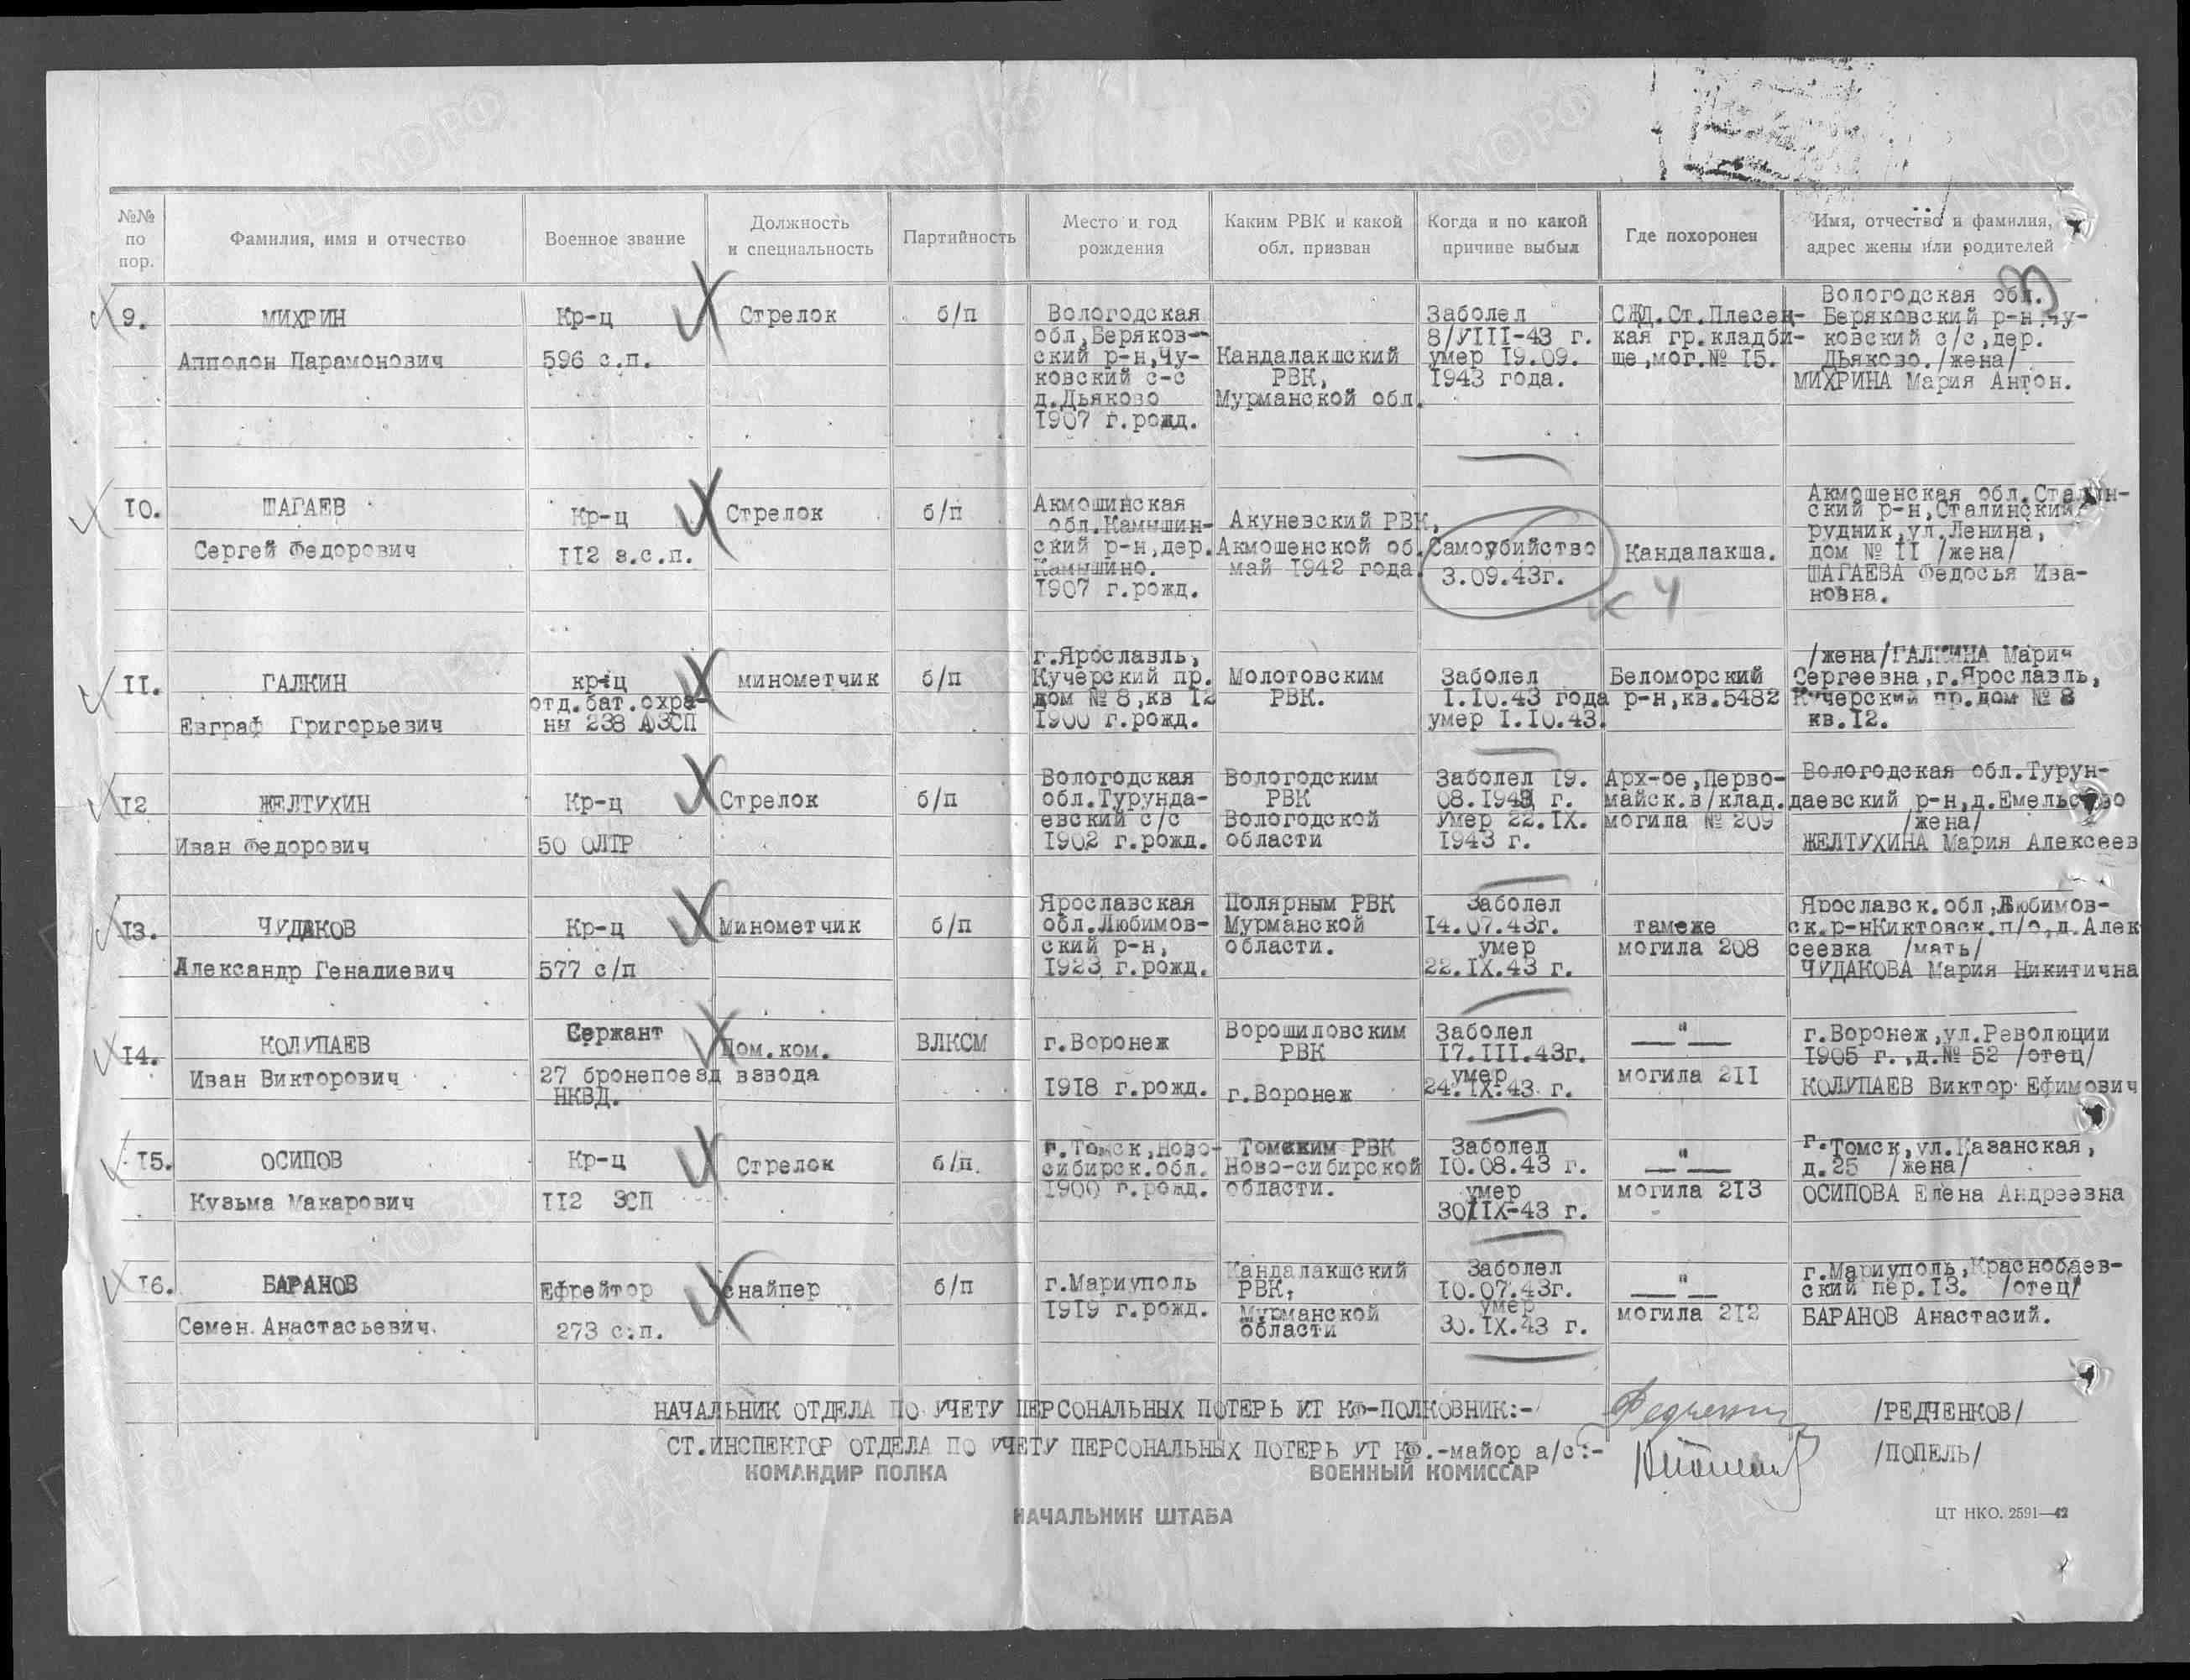 №№ по пор.
Фамилия, имя и отчество
Военное звание
Должность и специальность
Партийность
Место и год рождения
Каким РВК и какой обл. призван
Когда и по какой причине выбыл
Где похоронен
Имя, отчество и фамилия, адрес жены или родителей
9.
МИХРИН
Апполон Парамонович
Кр-ц
596 с.п.
Стрелок
б/п
Вологодская
обл,Беряков-
ский р-н,Чу-
ковский с-с
д.Дьяково
1907 г.рожд.
Кандалакшский
РВК,
Мурманской обл.
Заболел
8/УІІІ-43 г.
умер 19.09.
1943 года.
СЖД.Ст.Плесец-
кая гр.кладби-
ще,мог.№ 15.
Вологодская обл.
Беряковский р-н,чу-
ковский с/с,дер.
Дьяково./жена/
МИХРИНА Мария Антон.
10.
ШАГАЕВ
Сергей Федорович
Кр-ц
112 з.с.п.
Стрелок
б/п
Акмошинская
обл.Камышин-
ский р-н,дер.
Камышино.
1907 г.рожд.
Акуневский РВК,
Акмошенской об.
май 1942 года.
Самоубийство
3.09.43г.
Кандалакша.
к 4
Акмошенская обл.Сталин-
ский р-н,Сталинский
рудник,ул.Ленина,
дом № 11 /жена/
ШАГАЕВА Федосья Ива-
новна.
11.
ГАЛКИН
Евграф Григорьевич
кр-ц
отд.бат.охра-
ны 238 АЗСП
минометчик
б/п
г.Ярославль,
Кучерский пр.
дом № 8,кв 12
1900 г.рожд.
Молотовским
РВК.
Заболел
1.10.43 года
умер 1.10.43.
Беломорский
р-н,кв.5482
/жена/ГАЛКИНА Мария
Сергеевна,г.Ярославль,
Кучерский пр.дом № 8
кв.12.
12
ЖЕЛТУХИН
Иван Федорович
Кр-ц
50 ОЛПР
Стрелок
б/п
Вологодская
обл.Турунда-
евский с/с
1902 г.рожд.
Вологодским
РВК
Вологодской
области
Заболел 19.
08.1943 г.
Умер 22.IX.
1943 г.
Арх-ое,Перво-
майск.в/клад.
могила № 209
Вологодская обл.Турун-
даевский р-н,д.Емельсово
/жена/
ЖЕЛТУХИНА Мария Алексеев
13.
ЧУДАКОВ
Александр Генадиевич
Кр-ц
577 с/п
Минометчик
б/п
Ярославская
обл.Любимов-
ский р-н,
1923 г.рожд.
Полярным РВК
Мурманской
области.
Заболел
14.07.43г.
умер
22.IX.43 г.
тамеже
могила 208
Ярославск.обл,Любимов-
ск.р-нКиктовск.п/о,д.Алек
сеевка /мать/
ЧУДАКОВА Мария Никитична
14.
КОЛУПАЕВ
Иван Викторович
Сержант
27 бронепоезд взвода
НКВД.
Пом.ком.
ВЛКСМ
г.Воронеж
1918 г.рожд.
Ворошиловским
РВК
г.Воронеж
Заболел
17.III.43г.
умер
24.IX.43 г.
—"—
могила 211
г.Воронеж,ул.Революции
1905 г.,д.№ 52 /отец/
КОЛУПАЕВ Виктор Ефимович
15.
ОСИПОВ
Кузьма Макарович
Кр-ц
112 ЗСП
Стрелок
б/п.
г.Томск,Ново-
сибирск.обл.
1900 г.рожд.
Томским РВК
Ново-сибирской
области.
Заболел
10.08.43 г.
умер
30/IX-43 г.
—"—
могила 213
г.Томск,ул.Казанская,
д.25 /жена/
ОСИПОВА Елена Андреевна
16.
БАРАНОВ
Семен Анастасьевич.
Ефрейтор
273 с.п.
снайпер
б/п
г.Мариуполь
1919 г.рожд.
Кандалакшский
РВК,
Мурманской
области
Заболел
10.07.43г.
умер
30.IX.43 г.
—"—
могила 212
г.Мариуполь,Краснобаев-
ский пер.13. /отец/
БАРАНОВ Анастасий.
НАЧАЛЬНИК ОТДЕЛА ПО УЧЕТУ ПЕРСОНАЛЬНЫХ ПОТЕРЬ УТ КФ-ПОЛКОВНИК:- /РЕДЧЕНКОВ/
СТ.ИНСПЕКТОР ОТДЕЛА ПО УЧЕТУ ПЕРСОНАЛЬНЫХ ПОТЕРЬ УТ КФ.-майор а/с:- /ПОПЕЛЬ/
КОМАНДИР ПОЛКА ВОЕННЫЙ КОМИССАР
НАЧАЛЬНИК ШТАБА
ЦТ НКО. 2591—42